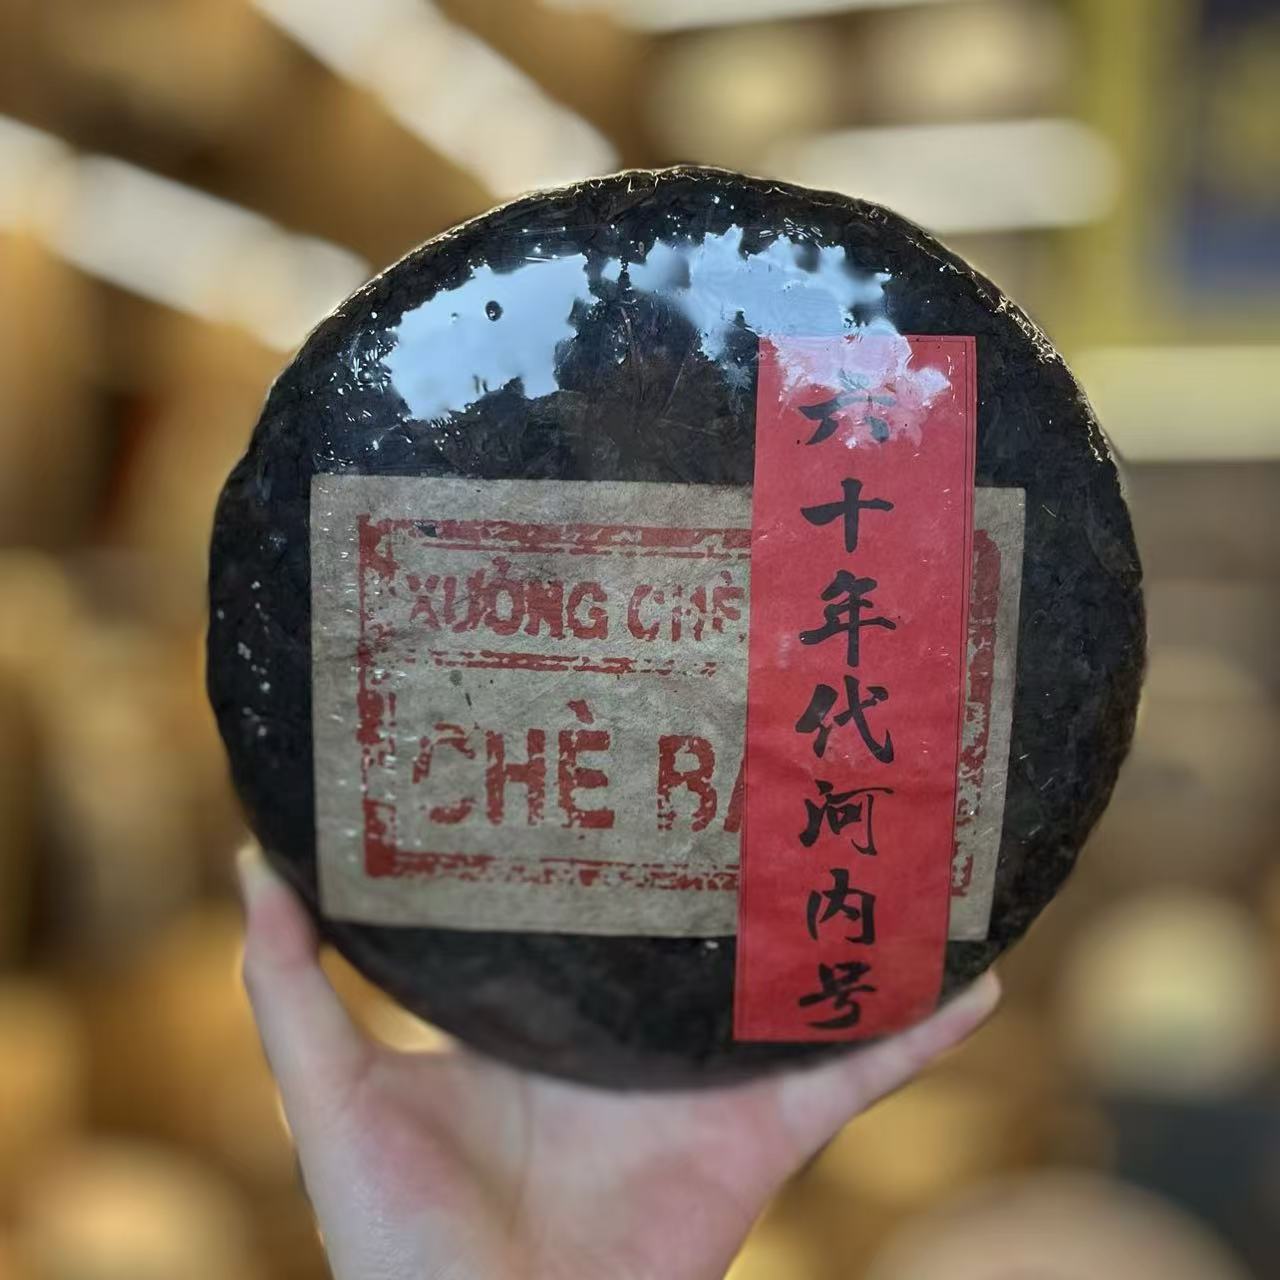 XƯỞNG CHÈ
CHÈ BA
六十年代河内号